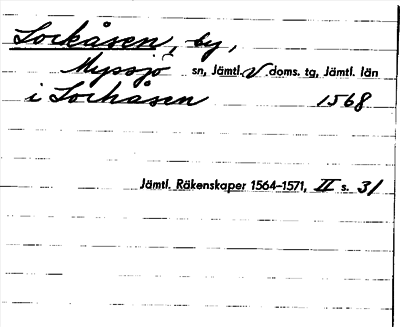 Lockåsen, by,
Myssjö sn, Jämtl. V. doms. tg, Jämtl. län
i Lockåsen 1568
Jämtl. Räkenskaper 1564–1571, II s. 31